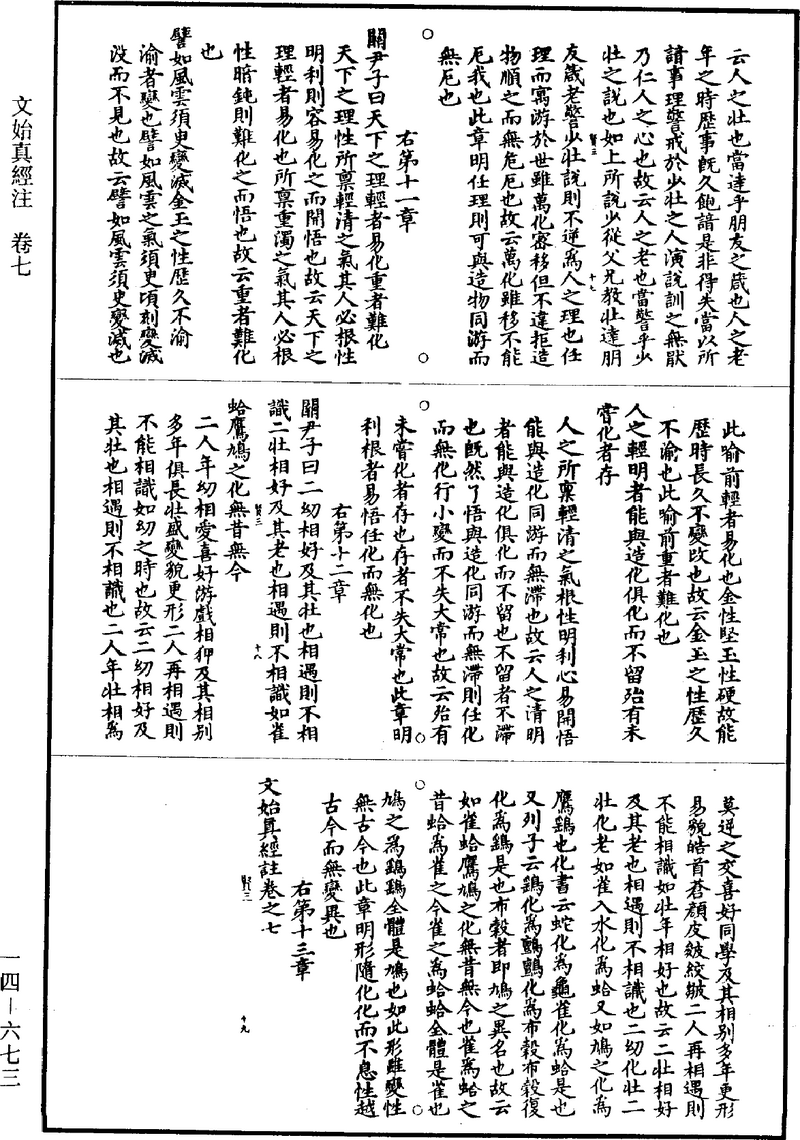 云人之壮也當達乎朋友之箴也人之老
年之時歷事既久飽諳是非得失當以所
諳事理警戒於少壮之人演說訓之無猒
乃仁人之心也故云人之老也當警乎少
壮之說也如上所說少從父兄教壮達朋
賢三
十七
友箴老警少壮說則不逆為人之理也任
理而寓游於世雖萬化密移但不違拒造
物順之而無危厄也故云萬化雖移不能
厄我也此章明任理則可與造物同游而
無厄也
右第十一章
關尹子曰天下之理輕者易化重者難化
天下之理性所禀輕清之氣其人必根性
明利則容易化之而開悟也故云天下之
理輕者易化也所禀重濁之氣其人必根
性暗鈍則難化之而悟也故云重者難化
也
譬如風雲須臾變滅金玉之性歷久不渝
渝者變也譬如風雲之氣須臾頃刻變滅
没而不見也故云譬如風雲須臾變滅也
此喻前輕者易化也金性堅玉性硬故能
歷時長久不變改也故云金玉之性歷久
不渝也此喻前重者難化也
人之輕明者能與造化俱化而不留殆有未
嘗化者存
人之所禀輕清之氣根性明利心易開悟
能與造化同游而無滯也故云人之清明
者能與造化俱化而不留也不留者不滯
也既然了悟與造化同游而無滯則任化
而無化行小變而不失大常也故云殆有
未嘗化者存也存者不失大常也此章明
利根者易悟任化而無化也
右第十二章
關尹子曰二幼相好及其壮也相遇則不相
識二壮相好及其老也相遇則不相識如雀
賢三
十八
蛤鷹鳩之化無昔無今
二人年幼相愛喜好游戲相狎及其相别
多年俱長壮盛變貌更形二人再相遇則
不能相識如幼之時也故云二幼相好及
其壮也相遇則不相識也二人年壮相為
莫逆之交喜好同學及其相别多年更形
易貌皓首蒼顏皮皴紋皺二人再相遇則
不能相識如壮年相好也故云二壮相好
及其老也相遇則不相識也二幼化壮二
壮化老如雀入水化為蛤又如鳩之化為
鷹鷂也化書云蛇化為龜雀化為蛤是也
又列子云鷂化為鸇鸇化為布穀布穀復
化為鷂是也布穀者即鳩之異名也故云
如雀蛤鷹鳩之化無昔無今也雀為蛤之
昔蛤為雀之今雀之為蛤蛤全體是雀也
鳩之為鷂鷂全體是鳩也如此形雖變性
無古今也此章明形隨化化而不息性越
古今而無變異也
右第十三章
文始真經註卷之七
賢三
十九
文始真經注　卷七
一四－六七三